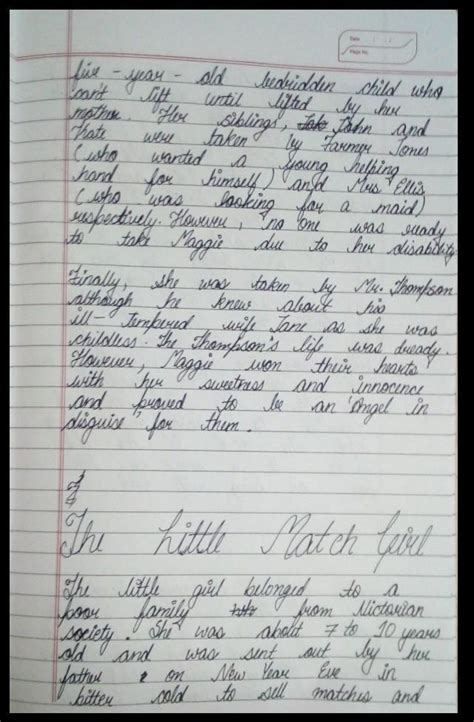 Date
Page No.
five - year - old bedridden child who
can't lift until lifted by her
mother. Her siblings, John and
Kate were taken by Farmer Jones
(who wanted a young helping
hand for himself) and Mrs Ellis
(who was looking for a maid)
respectively. However, no one was ready
to take Maggie due to her disability
Finally, she was taken by Mr. Thompson
although he knew about his
ill - tempered wife Jane as she was
childless. The Thompson's life was dready.
However, Maggie won their hearts
with her sweetness and innocence
and proved to be an 'Angel in
disguise' for them.
The Little Match Girl
The little girl belonged to a
poor family from Victorian
society. She was about 7 to 10 years
old and was sent out by her
father on New Year Eve in
bitter cold to sell matches and